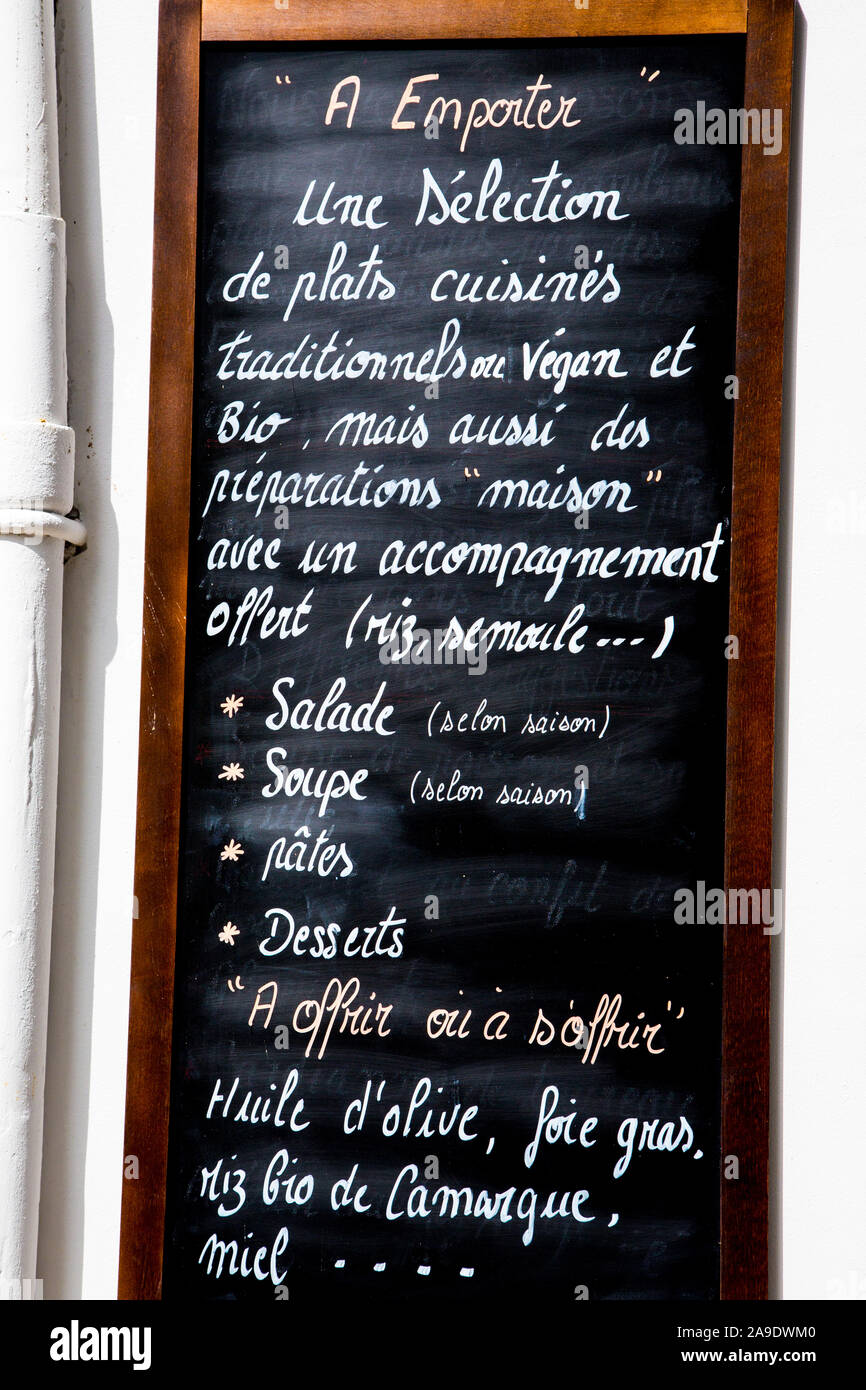 " A Emporter "
Une Sélection
de plats cuisinés
traditionnels ou Végan et
Bio, mais aussi des
préparations "maison"
avec un accompagnement
offert (riz, semoule...)
* Salade (selon saison)
* Soupe (selon saison)
* pâtes
* Desserts
"A offrir où à s'offrir"
Huile d'olive, foie gras,
riz bio de Camargue,
miel ....
alamy
Image ID: 2A9DWM0
www.alamy.com